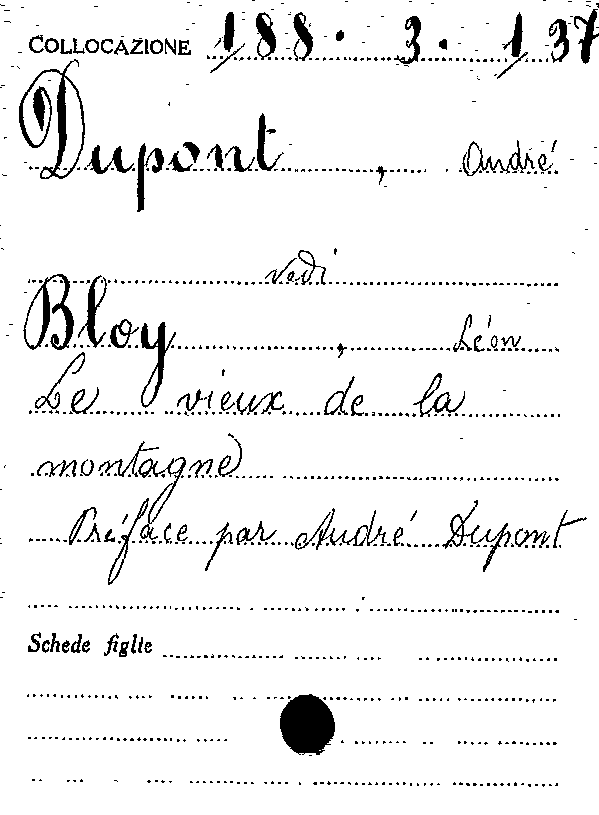 COLLOCAZIONE 188. 3. 137
Dupont, André
vedi
Bloy, Léon
Le vieux de la
montagne
Préface par André Dupont
Schede figlie